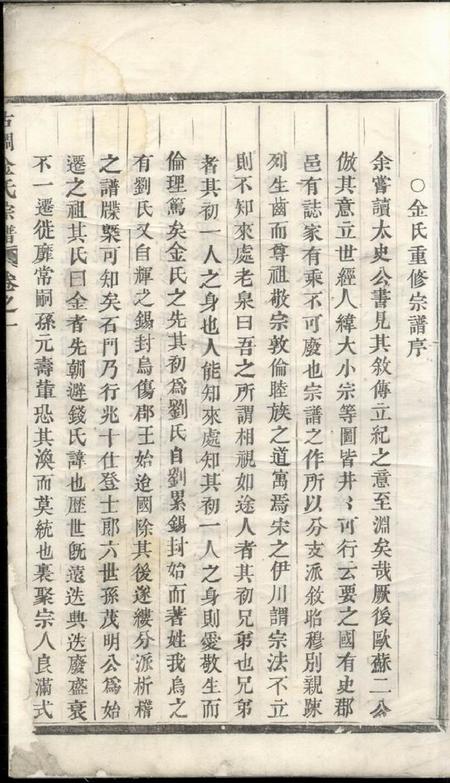 ○金氏重修宗譜序
余嘗讀太史公書見其敘傳立紀之意至淵矣哉厥後歐蘇二公
倣其意立世經人緯大小宗等圖皆井〻可行云要之國有史郡
邑有誌家有乘不可廢也宗譜之作所以分支派敘昭穆別親踈
列生齒而尊祖敬宗敦倫睦族之道寓焉宋之伊川謂宗法不立
則不知來處老泉曰吾之所謂相視如途人者其初兄弟也兄弟
者其初一人之身也人能知來處知其初一人之身則愛敬生而
倫理篤矣金氏之先其初為劉氏自劉累錫封始而著姓我烏之
有劉氏又自輝之錫封烏傷郡王始迨國除其後遂縷分派析稽
之譜牒槩可知矣石門乃行兆十仕登士郎六世孫茂明公為始
遷之祖其氏曰金者先朝避錢氏諱也歷世旣遠迭興迭廢盛衰
不一遷徙靡常嗣孫元壽軰恐其渙而莫統也裒聚宗人良滿式
古調金氏宗譜 卷之一